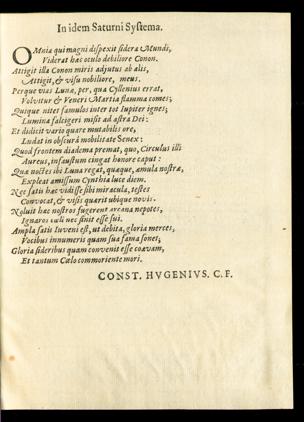 In idem Saturni Systema.
OMnia qui magni dispexit sidera Mundi,
Viderat hæc oculo debiliore Conon.
Attigit illa Conon miris adjutus ab alis,
Attigit, & visu nobiliore, meus.
Perque vias Lunæ, per, qua Cyllenius errat,
Volvitur & Veneri Martia flamma comes;
Quique nitet famulos inter tot Iupiter ignes;
Lumina falcigeri misit ad astra Dei:
Et didicit vario quare mutabilis ore,
Ludat in obscurâ mobilitate Senex:
Quod frontem diadema premat, quo, Circulus illi
Aureus, infaustum cingat honore caput:
Quæ noctes ibi Luna regat, quæque, æmula nostræ,
Expleat amissum Cynthia luce diem.
Nec satis hæc vidisse sibi miracula, testes
Convocat, & visis quærit ubique novis.
Noluit hæc nostros fugerent arcana nepotes,
Ignaros cæli nec sinit esse sui.
Ampla satis Iuveni est, ut debita, gloria merces,
Vocibus innumeris quam sua fama sonet;
Gloria sideribus quam convenit esse coævam,
Et tantum Cælo commoriente mori.
CONST. HVGENIVS. C. F.